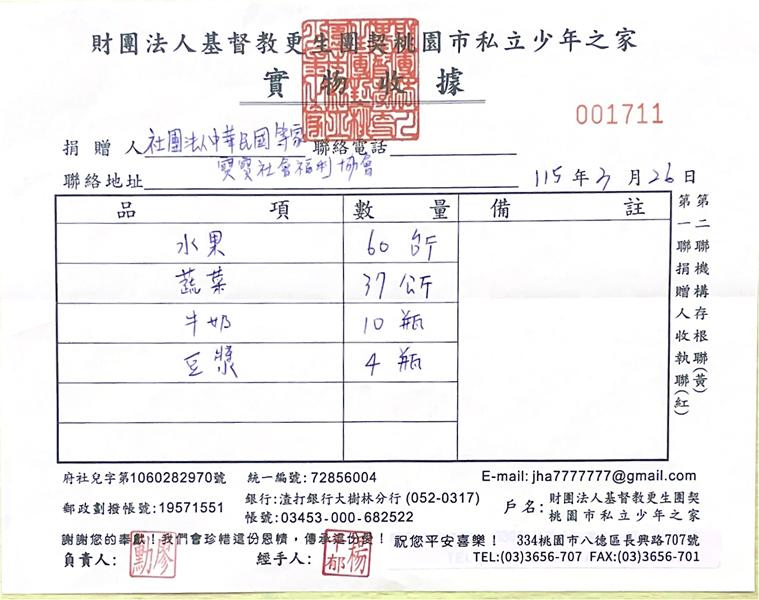 財團法人基督教更生團契桃園市私立少年之家
實物收據
001711
捐贈人 社團法人中華民國等家寶寶社會福利協會 聯絡電話
聯絡地址 115年3月26日
品項 數量 備註
水果 60台斤
蔬菜 37公斤
牛奶 10瓶
豆漿 4瓶
第一聯捐贈人收執聯(紅)
第二聯機構存根聯(黃)
府社兒字第1060282970號 統一編號:72856004 E-mail:jha7777777@gmail.com
郵政劃撥帳號:19571551 銀行:渣打銀行大樹林分行(052-0317) 戶名:財團法人基督教更生團契
帳號:03453-000-682522 桃園市私立少年之家
謝謝您的奉獻!我們會珍惜這份恩情,傳承這份愛! 祝您平安喜樂! 334桃園市八德區長興路707號
負責人: 經手人: TEL:(03)3656-707 FAX:(03)3656-701